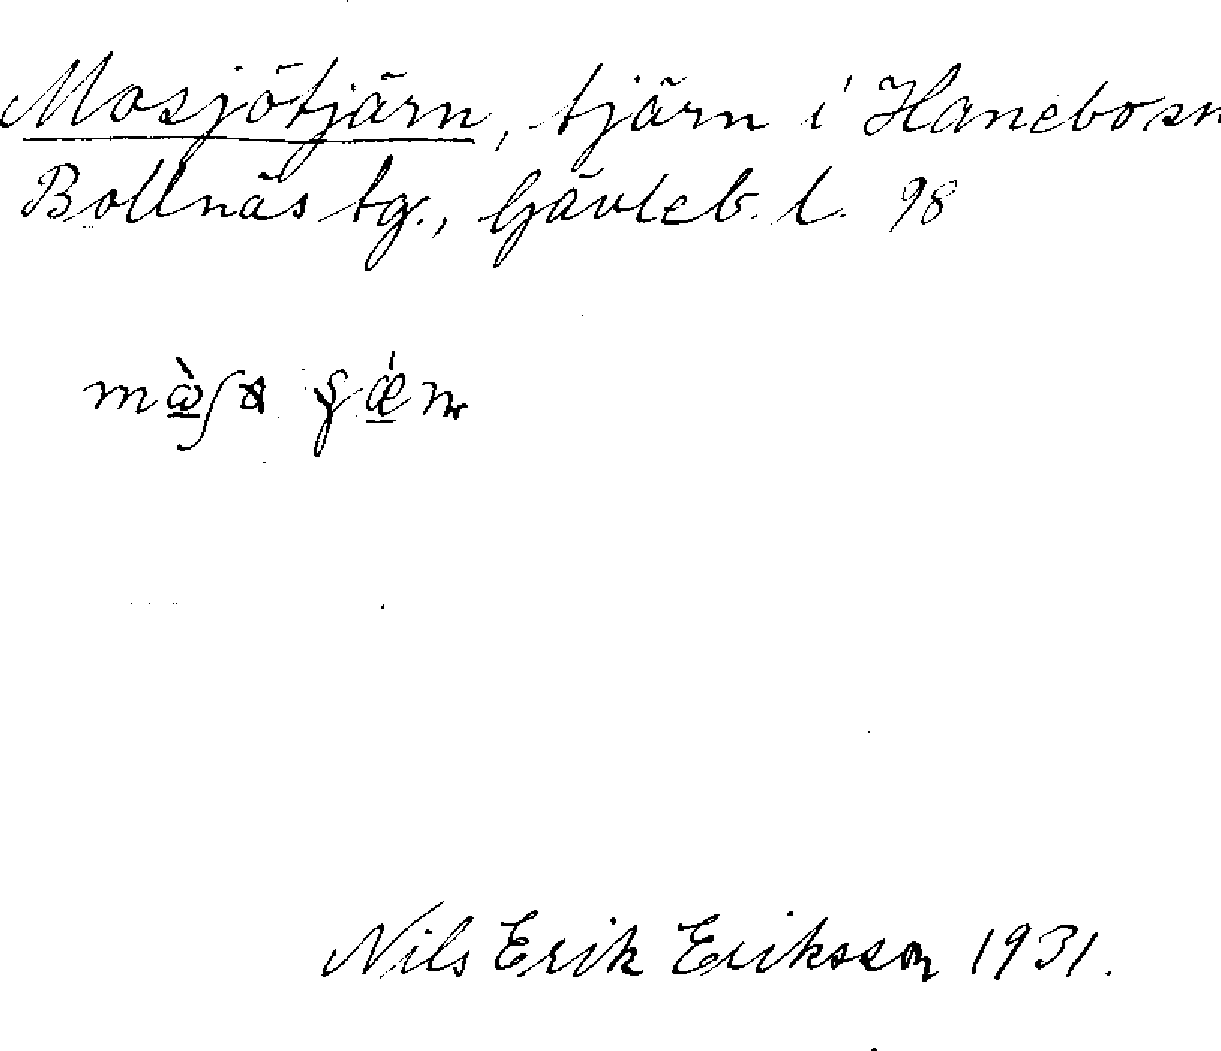 Mosjötjärn, tjärn i Hanebosn
Bollnäs tg., Gävleb. l. 98
Nils Erik Eriksson 1931.